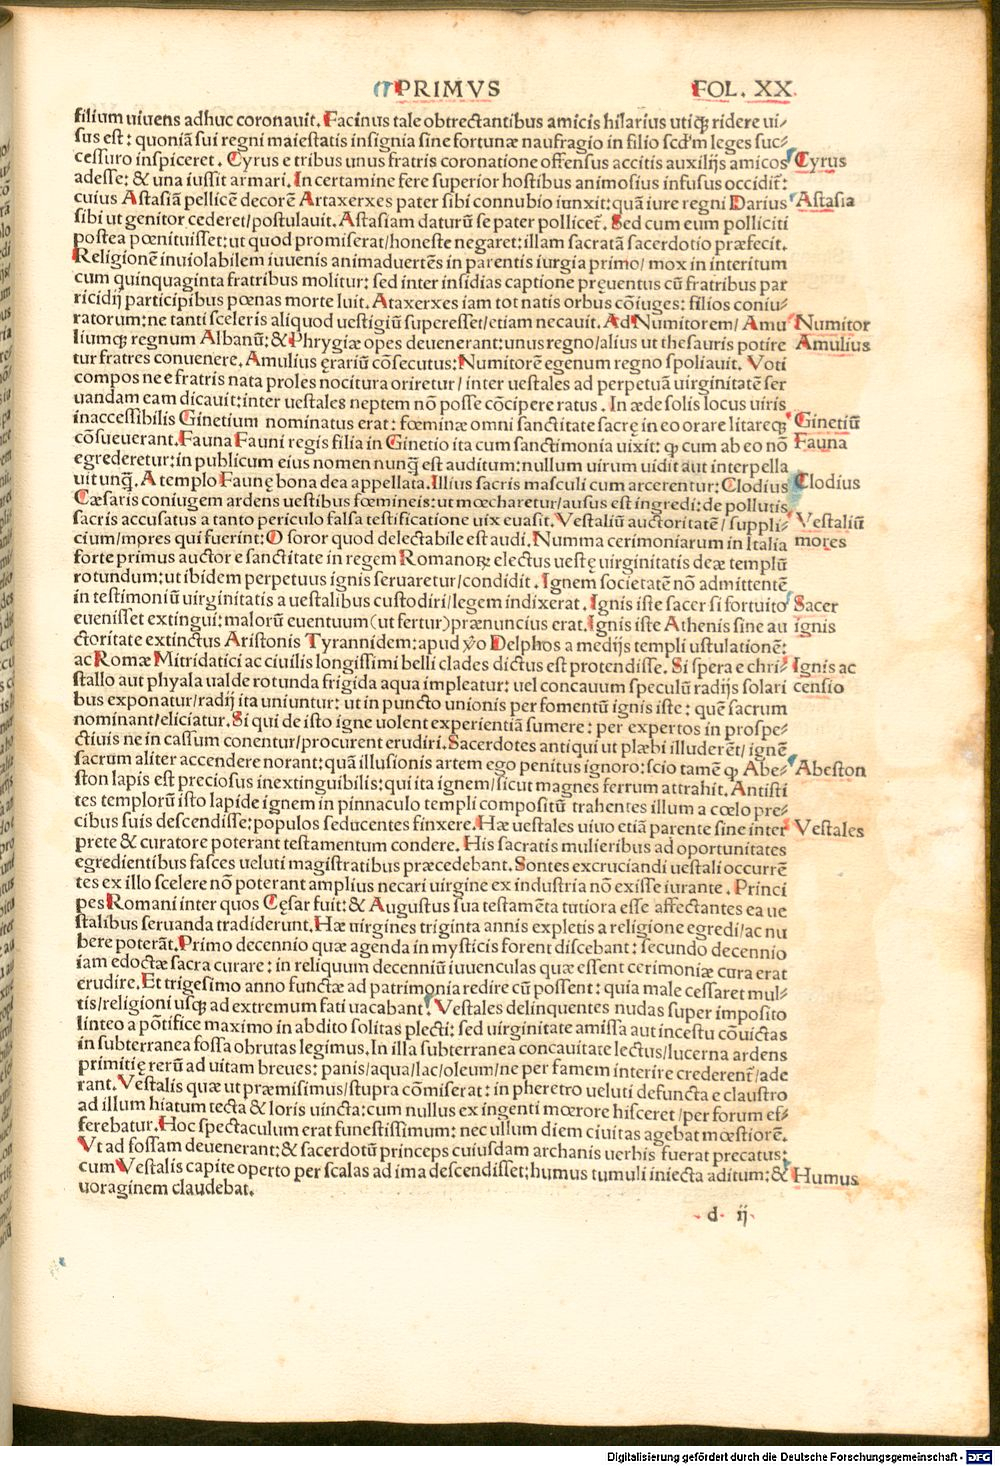 PRIMVS FOL. XX.
filium uiuens adhuc coronauit. Facinus tale obtrectantibus amicis hilarius utiqꝫ ridere ui⸗
sus est: quoniã sui regni maiestatis insignia sine fortunæ naufragio in filio scd̃m leges suc⸗
cessuro inspiceret. Cyrus e tribus unus fratris coronatione offensus accitis auxilijs amicos
Cyrus
adesse: & una iussit armari. In certamine fere superior hostibus animosius infusus occidit̃:
cuius Astasiã pellicẽ decorẽ Artaxerxes pater sibi connubio iunxit: quã iure regni Darius
Astasia
sibi ut genitor cederet/postulauit. Astasiam daturũ se pater pollicet̃. Sed cum eum polliciti
postea pœnituisset: ut quod promiserat/honeste negaret: illam sacratã sacerdotio præfecit.
Religionẽ inuiolabilem iuuenis animaduertẽs in parentis iurgia primo/ mox in interitum
cum quinquaginta fratribus molitur: sed inter insidias captione pręuentus cũ fratribus par
ricidij participibus pœnas morte luit. Ataxerxes iam tot natis orbus cõiuges: filios coniu⸗
ratorum: ne tanti sceleris aliquod uestigiũ superesset/etiam necauit. Ad Numitorem/ Amu
Numitor
liumqꝫ regnum Albanũ: & Phrygiæ opes deuenerant: unus regno/alius ut thesauris potire
Amulius
tur fratres conuenere. Amulius ęrariũ cõsecutus: Numitorẽ egenum regno spoliauit. Voti
compos ne e fratris nata proles nocitura oriretur/ inter uestales ad perpetuã uirginitatẽ ser
uandam eam dicauit: inter uestales neptem nõ posse cõcipere ratus. In æde solis locus uiris
inaccessibilis Ginetium nominatus erat: fœminæ omni sanctitate sacrę in eo orare litareqꝫ
Ginetiũ
cõsueuerant. Fauna Fauni regis filia in Ginetio ita cum sanctimonia uixit: ꝙ cum ab eo nõ
Fauna
egrederetur: in publicum eius nomen nunq̃ est auditum: nullum uirum uidit aut interpella
uit unq̃. A templo Faunę bona dea appellata. Illius sacris masculi cum arcerentur: Clodius
Clodius
Cæsaris coniugem ardens uestibus fœmineis: ut mœcharetur/ausus est ingredi: de pollutis
sacris accusatus a tanto periculo falsa testificatione uix euasit. Vestaliũ auctoritatẽ/ suppli⸗
Vestaliũ
cium/mores qui fuerint: O soror quod delectabile est audi. Numma cerimoniarum in Italia
mores
forte primus auctor e sanctitate in regem Romanorꝝ electus uestę uirginitatis deæ templũ
rotundum: ut ibidem perpetuus ignis seruaretur/condidit. Ignem societatẽ nõ admittentẽ
in testimoniũ uirginitatis a uestalibus custodiri/legem indixerat. Ignis iste sacer si fortuito
Sacer
euenisset extingui: malorũ euentuum (ut fertur) prænuncius erat. Ignis iste Athenis sine au
ignis
ctoritate extinctus Aristonis Tyrannidem: apud ṽo Delphos a medijs templi ustulationẽ:
ac Romæ Mitridatici ac ciuilis longissimi belli clades dictus est protendisse. Si spera e chri⸗
Ignis ac
stallo aut phyala ualde rotunda frigida aqua impleatur: uel concauum speculũ radijs solari
censio
bus exponatur/radij ita uniuntur: ut in puncto unionis per fomentũ ignis iste: quẽ sacrum
nominant/eliciatur. Si qui de isto igne uolent experientiã sumere: per expertos in prospe⸗
ctiuis ne in cassum conentur/procurent erudiri. Sacerdotes antiqui ut plæbi illuderẽt/ ignẽ
sacrum aliter accendere norant: quã illusionis artem ego penitus ignoro: scio tamẽ ꝙ Abe⸗
Abeston
ston lapis est preciosus inextinguibilis: qui ita ignem/sicut magnes ferrum attrahit. Antisti
tes templorũ isto lapide ignem in pinnaculo templi compositũ trahentes illum a cœlo pre⸗
cibus suis descendisse: populos seducentes finxere. Hæ uestales uiuo etiã parente sine inter
Vestales
prete & curatore poterant testamentum condere. His sacratis mulieribus ad oportunitates
egredientibus fasces ueluti magistratibus præcedebant. Sontes excruciandi uestali occurrẽ
tes ex illo scelere nõ poterant amplius necari uirgine ex industria nõ exisse iurante. Princi
pes Romani inter quos Cęsar fuit: & Augustus sua testamẽta tutiora esse affectantes ea ue
stalibus seruanda tradiderunt. Hæ uirgines triginta annis expletis a religione egredi/ac nu
bere poterãt. Primo decennio quæ agenda in mysticis forent discebant: secundo decennio
iam edoctæ sacra curare: in reliquum decenniũ iuuenculas quæ essent cerimoniæ cura erat
erudire. Et trigesimo anno functæ ad patrimonia redire cũ possent: quia male cessaret mul⸗
tis/religioni usqꝫ ad extremum fati uacabant. Vestales delinquentes nudas super imposito
linteo a põtifice maximo in abdito solitas plecti: sed uirginitate amissa aut incestu cõuictas
in subterranea fossa obrutas legimus. In illa subterranea concauitate lectus/lucerna ardens
primitię rerũ ad uitam breues: panis/aqua/lac/oleum/ne per famem interire crederent̃/ade
rant. Vestalis quæ ut præmisimus/stupra cõmiserat: in pheretro ueluti defuncta e claustro
ad illum hiatum tecta & loris uincta: cum nullus ex ingenti mœrore hisceret/per forum ef⸗
ferebatur. Hoc spectaculum erat funestissimum: nec ullum diem ciuitas agebat mœstiorẽ.
Vt ad fossam deuenerant: & sacerdotũ princeps cuiusdam archanis uerbis fuerat precatus:
cum Vestalis capite operto per scalas ad ima descendisset: humus tumuli iniecta aditum: &
Humus
uoraginem claudebat.
d ij
Digitalisierung gefördert durch die Deutsche Forschungsgemeinschaft - DFG